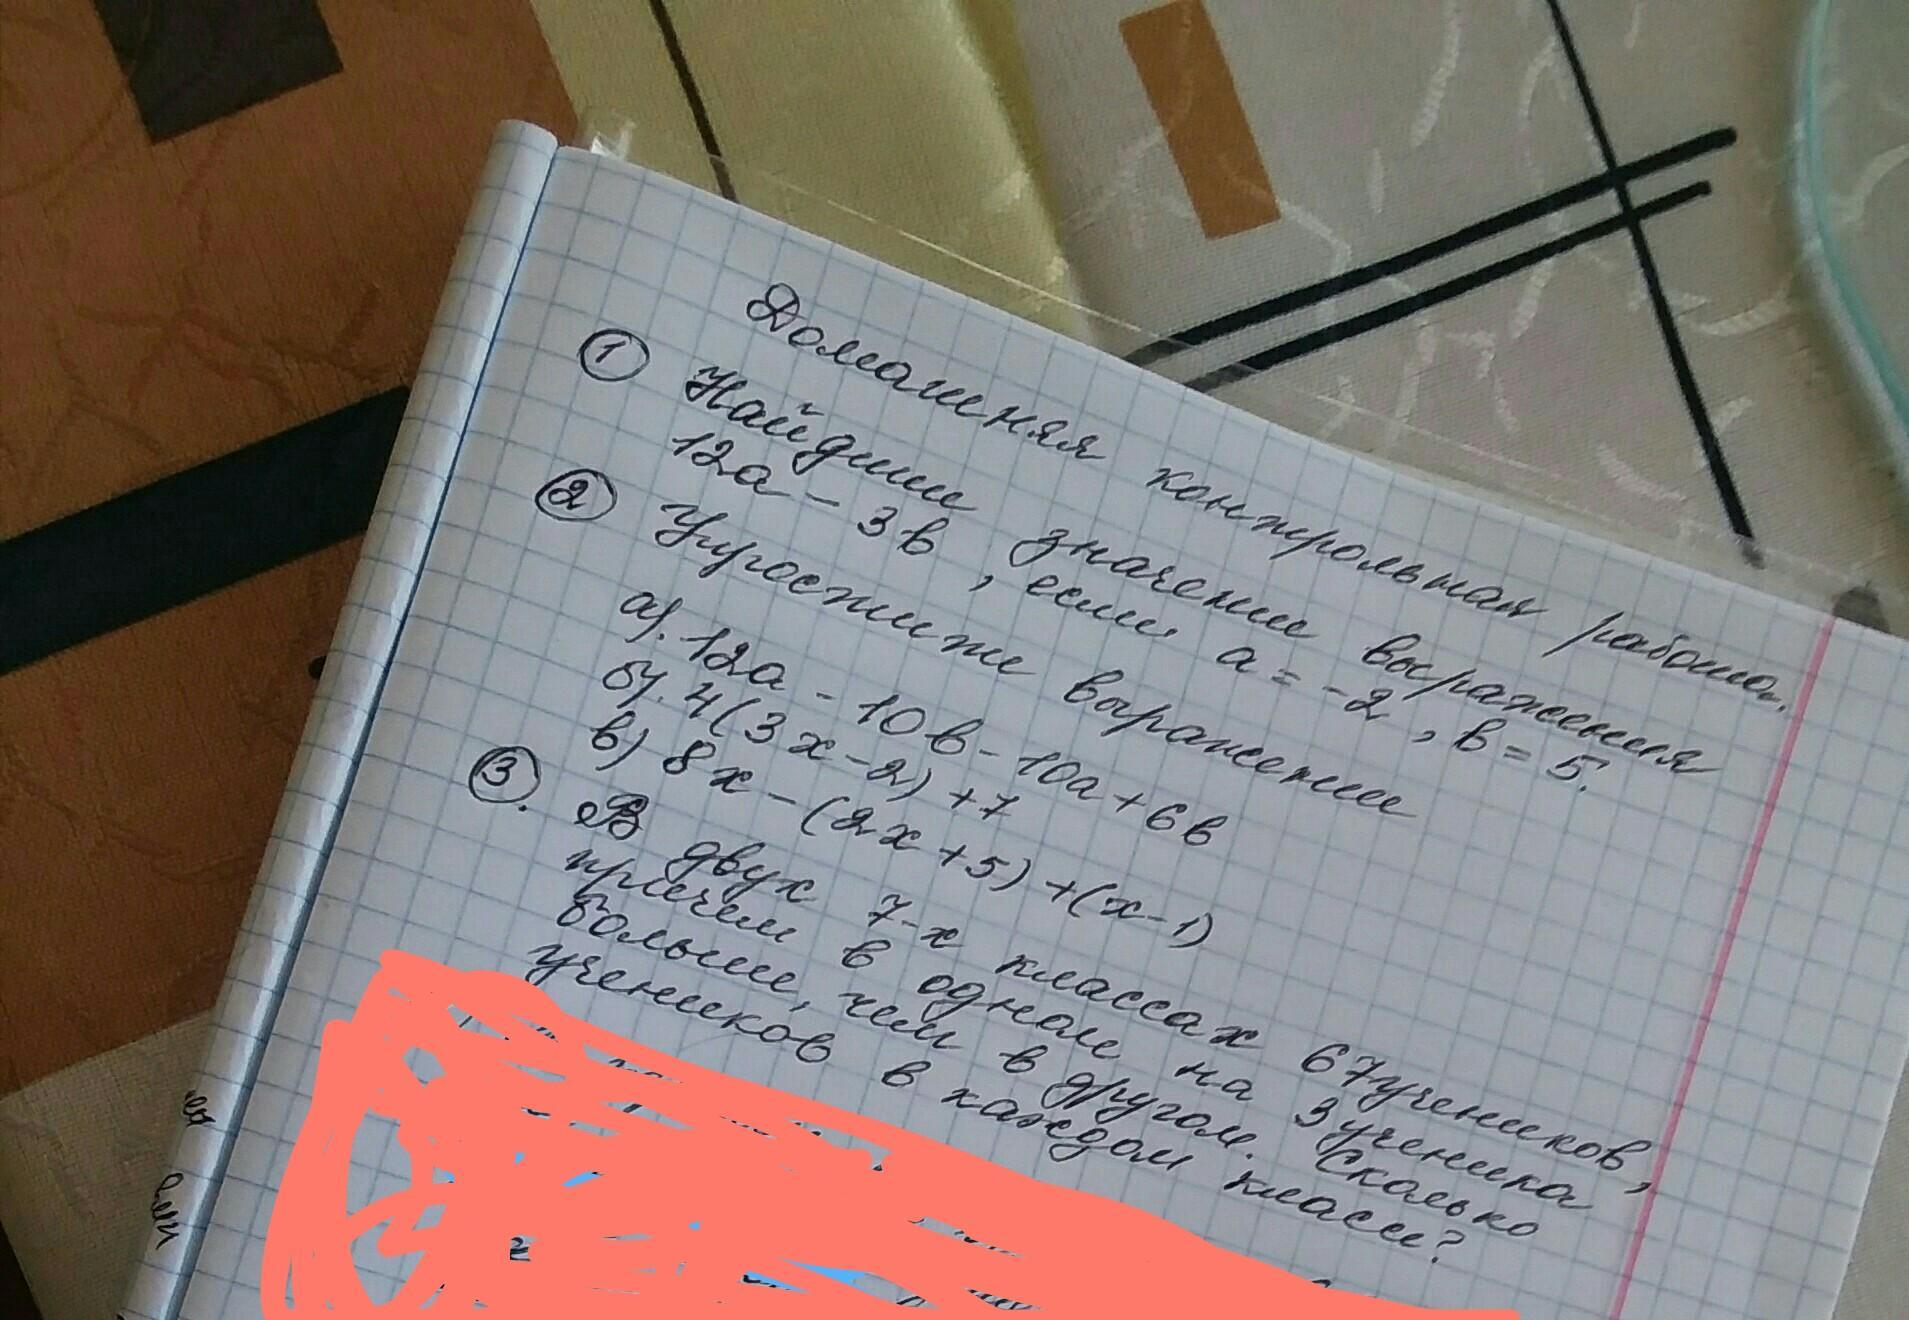 Домашняя контрольная работа.
1 Найдите значение выражения
12а - 3в, если а = -2, в = 5.
2 Упростите выражение
а). 12а - 10в - 10а + 6в
б). 4(3х - 2) + 7
в) 8х - (2х + 5) + (х - 1)
3. В двух 7-х классах 67 учеников,
причем в одном на 3 ученика
больше, чем в другом. Сколько
учеников в каждом классе?